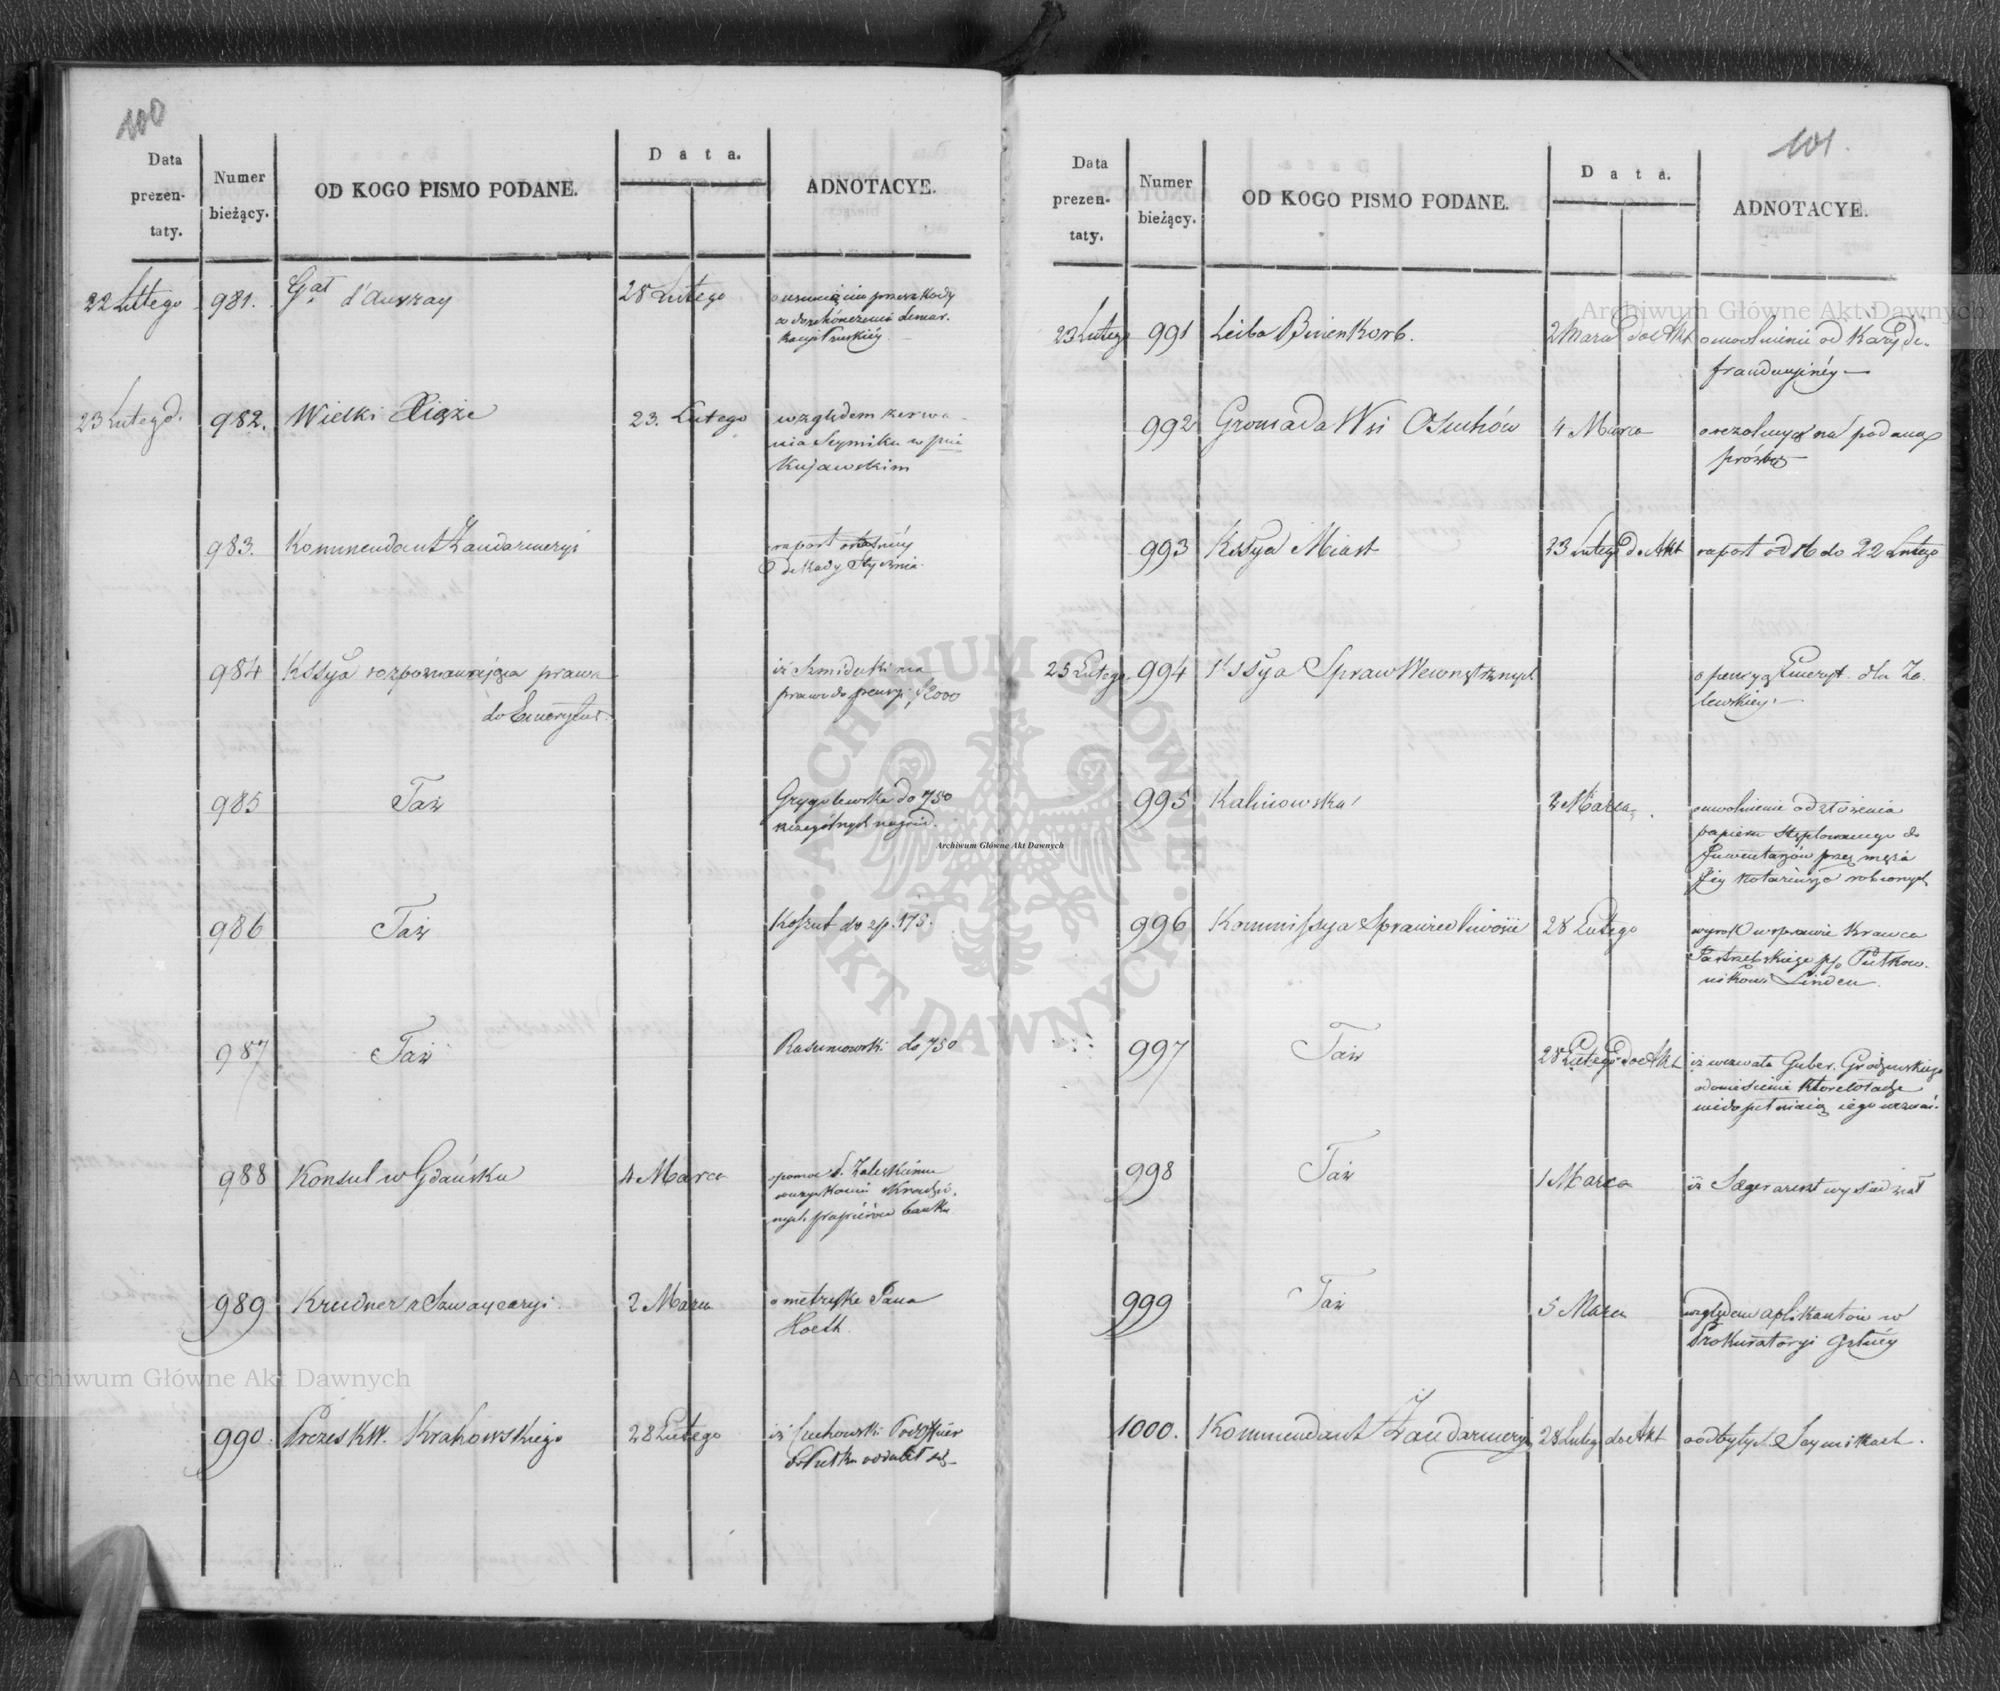 100
Data prezen- taty.
Numer bieżący.
OD KOGO PISMO PODANE.
Data.
ADNOTACYE.
22 Lutego 981. Gał d'Auvray 28 Lutego o usunięcie przeszkody
w dokończeniu demar-
kacyi Pruskiéy.
23 Lutego. 982. Wielki Xiąże 23. Lutego względem zerwa-
nia Seymiku w pcie
Kujawskim
983. Kommendant Żandarmeryi raport
dekady Stycznia.
984 Kssya rozpoznawająca prawa iż Szmidecki ma
do Emerytur. prawo do pensyi f 2000
985 Taż Grygolewska do 750
986 Taż Koszut do zp. 175.
987 Taż Rasumowski do 750
988 Konsul w Gdańsku 4 Marca o pomoc S. Zaleskiemu
w uzyskaniu skradzio-
nych papierów banku
989 Krudner z Szwaycaryi. 2 Marca o metrykę Pana
Hoeth.
990. Prezes KW. Krakowskiego 28 Lutego iż Cuchowski Podofficer
do Pułku oddalił się
101.
Data prezen- taty.
Numer bieżący.
OD KOGO PISMO PODANE.
Data.
ADNOTACYE.
23 Lutego 991 Leiba Binenkorb. 2 Marca do Akt o uwolnienie od Kary de-
fraudacyinéy
992 Gromada Wsi Osuchów 4 Marca o rezolucyą na podaną
prózbę
993 Kssya Miast 23 Lutego do Akt raport od 16 do 22 Lutego
25 Lutego. 994 Kssya Spraw Wewnętrznych o pensyą Emeryt. dla Za-
lewskiey.
995 Kalinowska 2 Marca. o uwolnienie od złożenia
papieru stęplowanego do
Inwentarzów przez męża
Jéy Notariusza robionych
996 Kommissya Sprawiedliwości 28 Lutego wyrok w sprawie Krawca
Jastrzebskiego p/o Pułkow-
nikowi Linden.
997 Taż 28 Lutego do Akt iż wezwała Guber. Grodzieńskiego
o doniesienie które Władze
niedopełniaią iego wezwań.
998 Taż 1 Marca iż Saeger areszt wysiedział
999 Taż 5 Marca względem aplikantów w
Prokuratoryi Gślnéy
1000. Kommendant Żandarmeryi 28 Luteg do Akt o odbytych Seymikach.
ARCHIWUM GŁÓWNE AKT DAWNYCH
Archiwum Główne Akt Dawnych
Archiwum Główne Akt Dawnych
Archiwum Główne Akt Dawnych